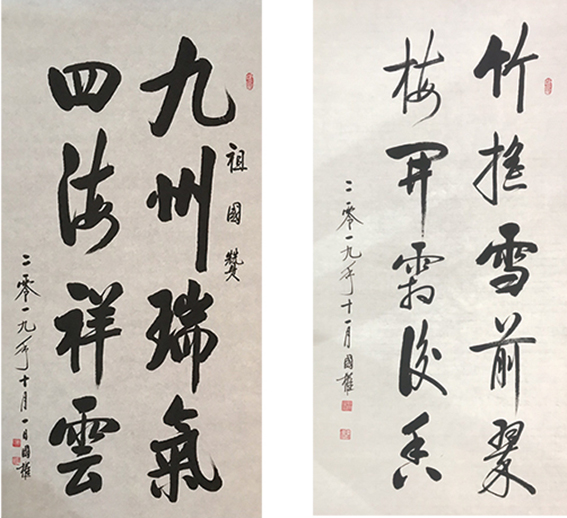 祖國贊
九州瑞氣
四海祥雲
二零一九年十月一日國權
竹搖雪前翠
梅開霜後香
二零一九年十一月國權